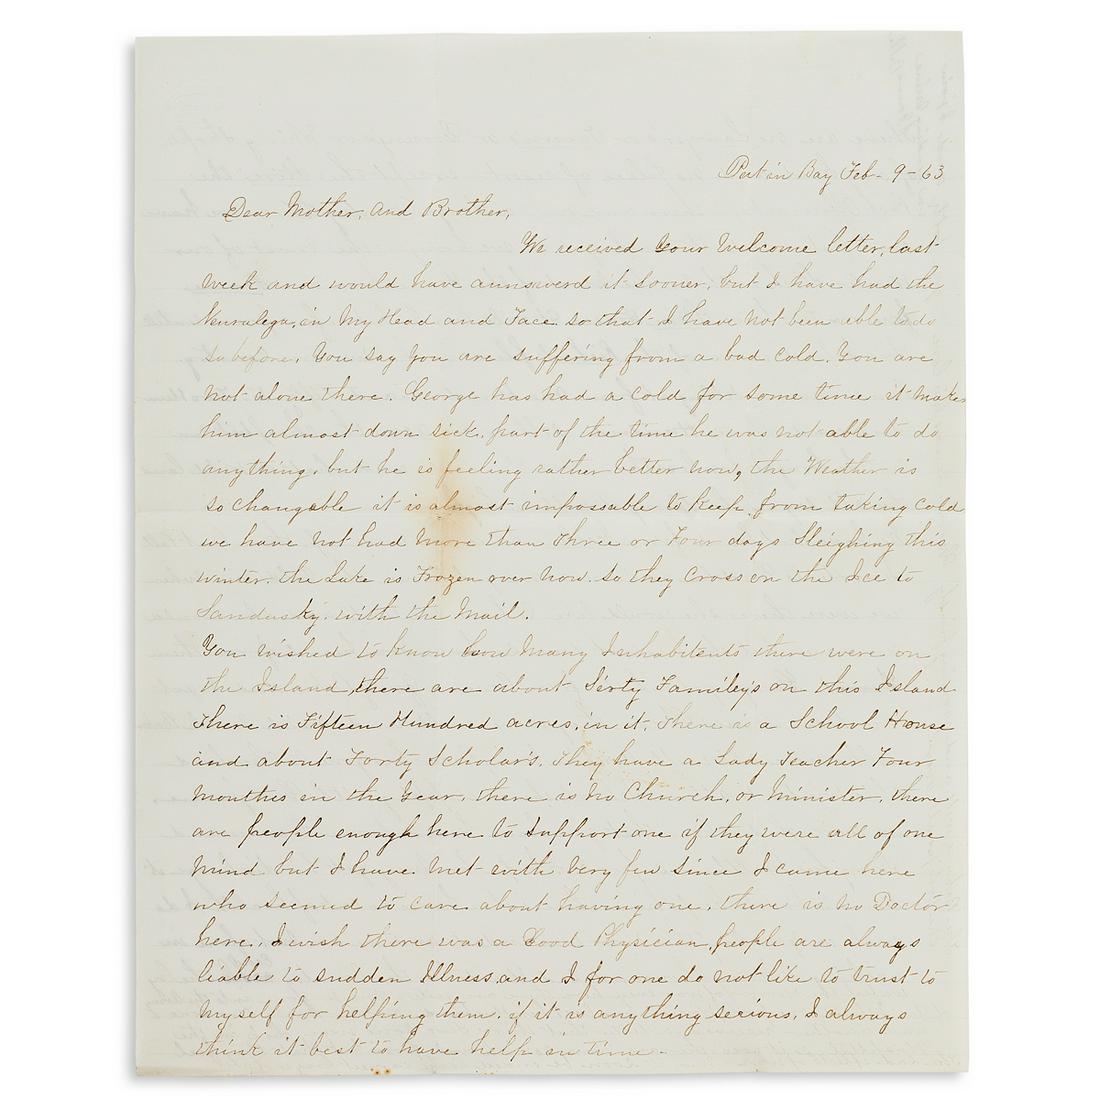 Put in Bay Feb - 9 - 63
Dear Mother, and Brother,
We received your Welcome letter, last
week and would have annswerd it sooner, but I have had the
Neuralega, in My Head and Face. so that I have not been able to do
so before. You say you are suffering from a bad cold. You are
not alone there. George has had a cold for some time it makes
him almost down sick. part of the time he was not able to do
anything, but he is feeling rather better now, the Weather is
so changable it is almost impossable to keep from taking Cold
we have not had More than Three or Four days Sleighing this
winter. the Lake is Frozen over now. so they Cross on the Ice to
Sandusky. with the Mail.
You wished to know how Many Inhabitents there were on
the Island, there are about Sixty Familey's on this Island
There is Fifteen Hundred acres, in it. There is a School House
and about Forty Scholar's. They have a Lady Teacher Four
Monthes in the Year, there is no Church, or Minister, there
are people enough here to support one if they were all of one
Mind but I have Met with very few since I came here
who seemed to care about having one. there is no Doctor
here. I wish there was a Good Physician, people are always
liable to sudden Illness, and I for one do not like to trust to
Myself for helping them. if it is anything serious, I always
think it best to have help in time -